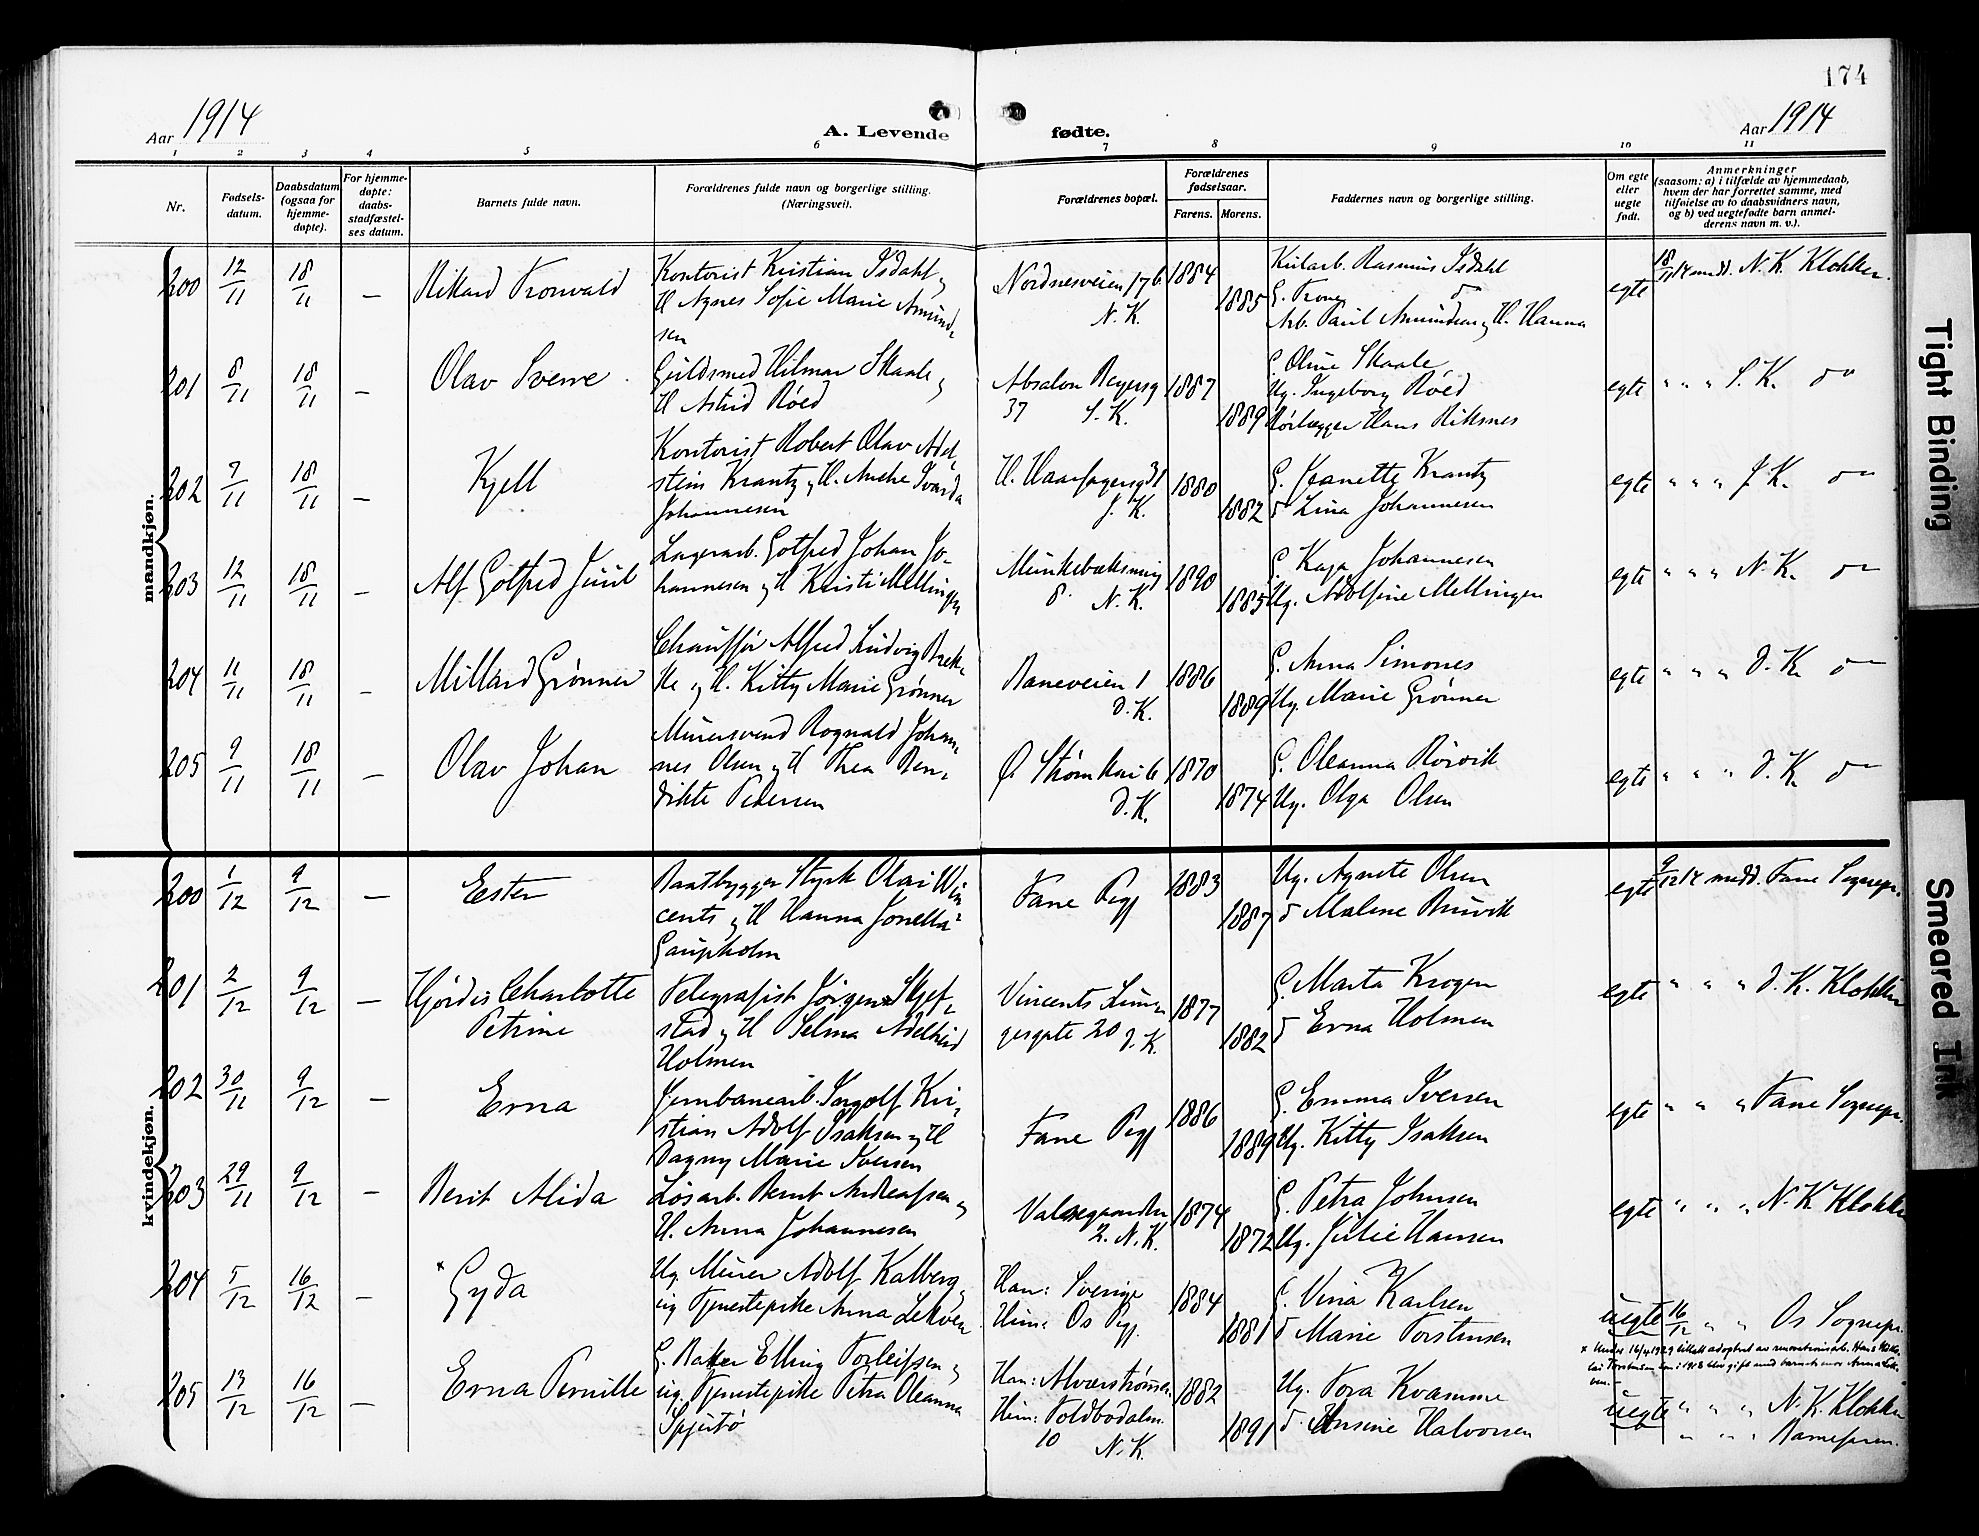 174
Aar 1914
A. Levende fødte.
Aar 1914
1 2 3 4 5 6 7 8 9 10 11
Nr.
Fødsels-
datum.
Daabsdatum
(ogsaa for
hjemme-
døpte).
For hjemme-
døpte:
daabs-
stadfæstel-
ses datum.
Barnets fulde navn.
Forældrenes fulde navn og borgerlige stilling.
(Næringsvei).
Forældrenes bopæl.
Forældrenes
fødselsaar.
Farens. Morens.
Faddernes navn og borgerlige stilling.
Om egte
eller
uegte
født.
Anmerkninger
(saasom: a) i tilfælde av hjemmedaab,
hvem der har forrettet samme, med
tilføielse av to daabsvidners navn,
og b) ved uegtefødte barn anmel-
derens navn m. v.).
mandkjøn.
200 12/11 18/11 — Rikard Tronvald
Kontorist Kristian Isdahl og
H Agnes Sofie Marie Amund-
sen
Nordnesveien 17 b
N. K.
1884 1885
Kulark. Rasmus Isdahl
G. Trone do
Arb. Paul Amundsen og H. Hanna
egte 18/11 14 medd. N. K. Klokker.
201 8/11 18/11 — Olav Sverre
Guldsmed Hilmar Skaale og
H Astrid Røed
Absalon Beyersg
37 S. K.
1887 1889
G. Oline Skaale
Ug. Ingeborg Røed
Rørlegger Hans Riksnes
egte " " " S. K. do
202 7/11 18/11 — Kjell
Kontorist Robert Olav Adel-
stein Krantz og H. Anche Svarda
Johannesen
H. Haarfagersg 31
J. K.
1880 1882
G. Jeanette Krantz
d Lina Johannesen
egte " " " J. K. do
203 12/11 18/11 — Alf Gotfred Juul
Lagerarb. Gotfred Johan Jo-
hannesen og H Kristi Mellingen
Munkebæksmug
8. N. K.
1890 1885
G. Kaja Johannesen
Ug. Adolfine Mellingen
egte " " " N. K. do
204 11/11 18/11 — Millard Grønner
Chauffør Alfred Ludvig Brek-
ke og H. Kitty Marie Grønner
Baneveien 1
D. K.
1886 1889
G. Anna Simones
Ug. Marie Grønner
egte " " " D. K. do
205 9/11 18/11 — Olav Johan
Murersvend Rognald Johan-
nes Olsen og H Thea Ben-
dikte Pedersen
Ø. Strømkai 6
D. K.
1870 1874
G. Oleanna Rørvik
Ug. Olga Olsen
egte " " " D. K. do
kvindekjøn.
200 1/12 9/12 — Ester
Baatbygger Styrk Olai Win
cents og H Hanna Jonetta
Gaupholm
Fane Pgj
1883 1887
Ug. Agnete Olsen
d Malene Bruvik
egte 9/12 14 medd. Fane Sognepr.
201 2/12 9/12 — Hjørdis Charlotte
Petrine
Telegrafist Jørgen Skjef-
stad og H Selma Adelheid
Holmen
Vincents Lun-
gesgate 20 D. K.
1877 1882
G. Marta Krogen
d Erna Holmen
egte " " " D. K. Klokker
202 30/11 9/12 — Erna
Jernbanearb. Ingolf Kri-
stian Adolf Isaksen og H
Dagny Marie Iversen
Fane Pgj
1886 1889
G. Emma Iversen
Ug. Kitty Isaksen
egte " " " Fane Sognepr.
203 29/11 9/12 — Berit Alida
Løsarb. Bernt Andreassen og
H. Anna Johannesen
2. N. K.
1874 1872
G. Petra Johnsen
Ug. Julie Hansen
egte " " " N. K Klokker
204 5/12 16/12 — × Gyda
Ug. Murer Adolf Kalberg og
ug Tjenestepike Anna Lekven
Han: Sverige
Hun: Os Pgj.
1884 1881
G. Vina Karlsen
d Marie Torstensen
uegte 16/12 " " Os Sognepr.
× Under 16/4 1929
205 13/12 16/12 — Erna Pernille
G. Baker Elling Torleifsen og
ug. Tjenestepike Petra Oleanna
Spjutø
Han: Alverstrømmen
Hun: Toldbodalm.
10 N. K.
1882 1891
Ug. Tora Kvamme
d. Hansine Halvorsen
uegte " " " N. K. Klokker
" " "
Tight Binding
Smeared Ink